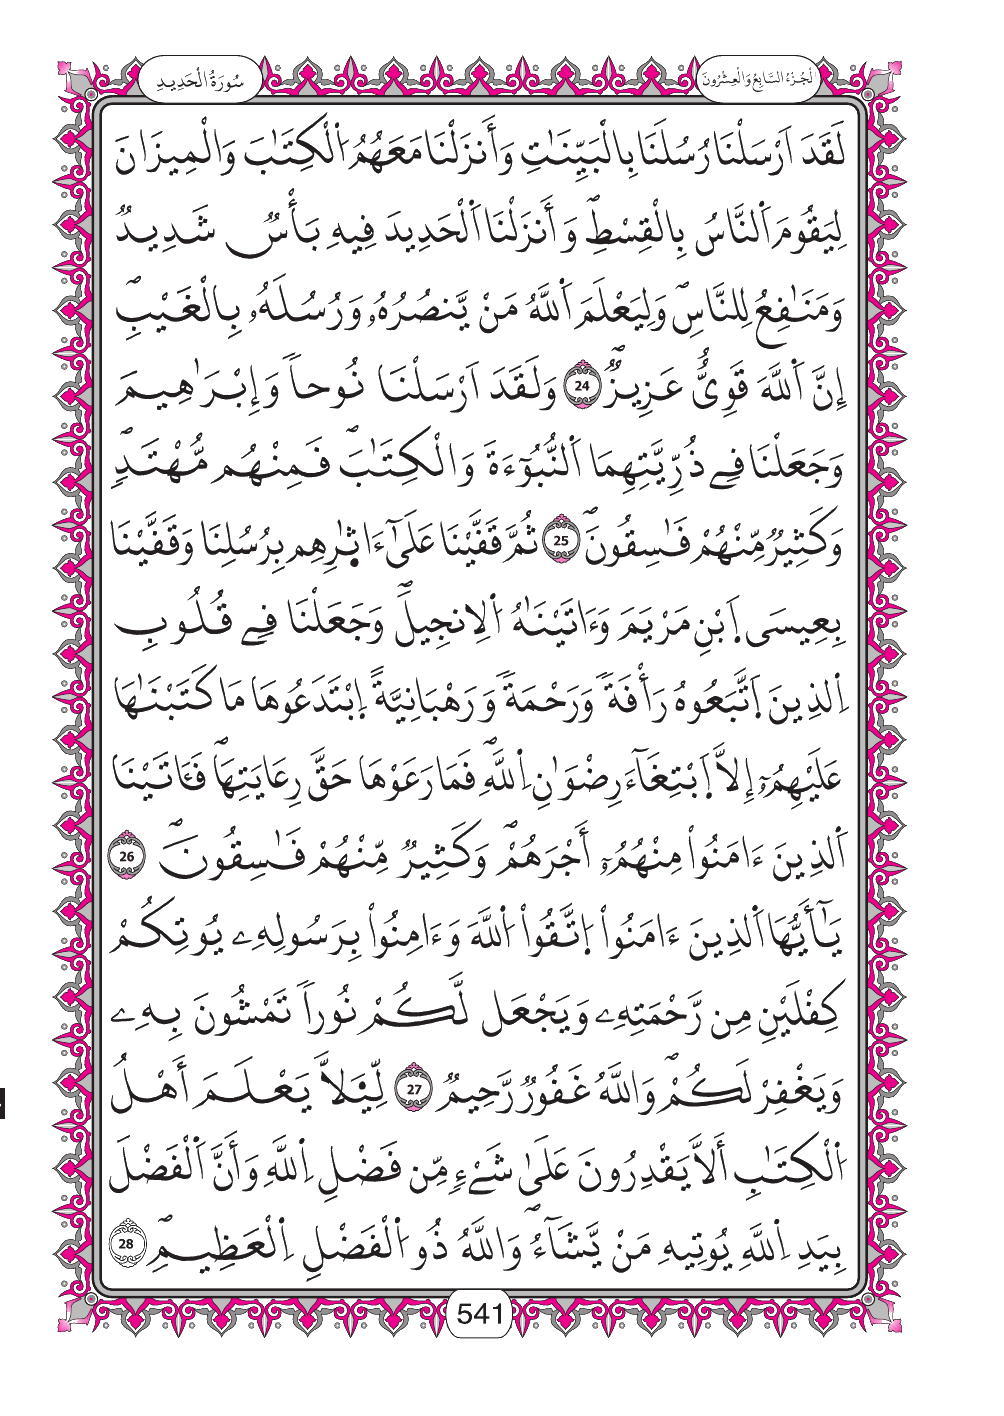 سُورَةُ الْحَدِيدِ
الْجُزْءُ السَّابِعُ وَالْعِشْرُونَ
لَقَدَ اَرْسَلْنَا رُسُلَنَا بِالْبَيِّنَٰتِ وَأَنزَلْنَا مَعَهُمُ اُ۬لْكِتَٰبَ وَالْمِيزَانَ
لِيَقُومَ اَ۬لنَّاسُ بِالْقِسْطِۖ وَأَنزَلْنَا اَ۬لْحَدِيدَ فِيهِ بَأْسٞ شَدِيدٞ
وَمَنَٰفِعُ لِلنَّاسِۖ وَلِيَعْلَمَ اَ۬للَّهُ مَنْ يَّنصُرُهُۥ وَرُسُلَهُۥ بِالْغَيْبِۖ
إِنَّ اَ۬للَّهَ قَوِيٌّ عَزِيزٞۖ 24 وَلَقَدَ اَرْسَلْنَا نُوحاٗ وَإِبْرَٰهِيمَ
وَجَعَلْنَا فِے ذُرِّيَّتِهِمَا اَ۬لنُّبُوٓءَةَ وَالْكِتَٰبَۖ فَمِنْهُم مُّهْتَدٖۖ
وَكَثِيرٞ مِّنْهُمْ فَٰسِقُونَۖ 25 ثُمَّ قَفَّيْنَا عَلَىٰٓ ءَاثٰ۪رِهِم بِرُسُلِنَا وَقَفَّيْنَا
بِعِيسَى اَ۪بْنِ مَرْيَمَ وَءَاتَيْنَٰهُ اُ۬لِانجِيلَۖ وَجَعَلْنَا فِے قُلُوبِ
اِ۬لذِينَ اَ۪تَّبَعُوهُ رَأْفَةٗ وَرَحْمَةٗۖ وَرَهْبَانِيَّةً اِ۪بْتَدَعُوهَا مَا كَتَبْنَٰهَا
عَلَيْهِمُۥٓ إِلَّا اَ۪بْتِغَآءَ رِضْوَٰنِ اِ۬للَّهِۖ فَمَا رَعَوْهَا حَقَّ رِعَايَتِهَاۖ فَـَٔاتَيْنَا
اَ۬لذِينَ ءَامَنُواْ مِنْهُمُۥٓ أَجْرَهُمْۖ وَكَثِيرٞ مِّنْهُمْ فَٰسِقُونَۖ 26
يَٰٓأَيُّهَا اَ۬لذِينَ ءَامَنُواْ اُ۪تَّقُواْ اُ۬للَّهَ وَءَامِنُواْ بِرَسُولِهِۦ يُوتِكُمْ
كِفْلَيْنِ مِن رَّحْمَتِهِۦ وَيَجْعَل لَّكُمْ نُوراٗ تَمْشُونَ بِهِۦ
وَيَغْفِرْ لَكُمْۖ وَاللَّهُ غَفُورٞ رَّحِيمٞ 27 لِّيَ۬لَّا يَعْلَمَ أَهْلُ
اُ۬لْكِتَٰبِ أَلَّا يَقْدِرُونَ عَلَىٰ شَےْءٖ مِّن فَضْلِ اِ۬للَّهِ وَأَنَّ اَ۬لْفَضْلَ
بِيَدِ اِ۬للَّهِ يُوتِيهِ مَنْ يَّشَآءُۖ وَاللَّهُ ذُو اُ۬لْفَضْلِ اِ۬لْعَظِيمِۖ 28
541